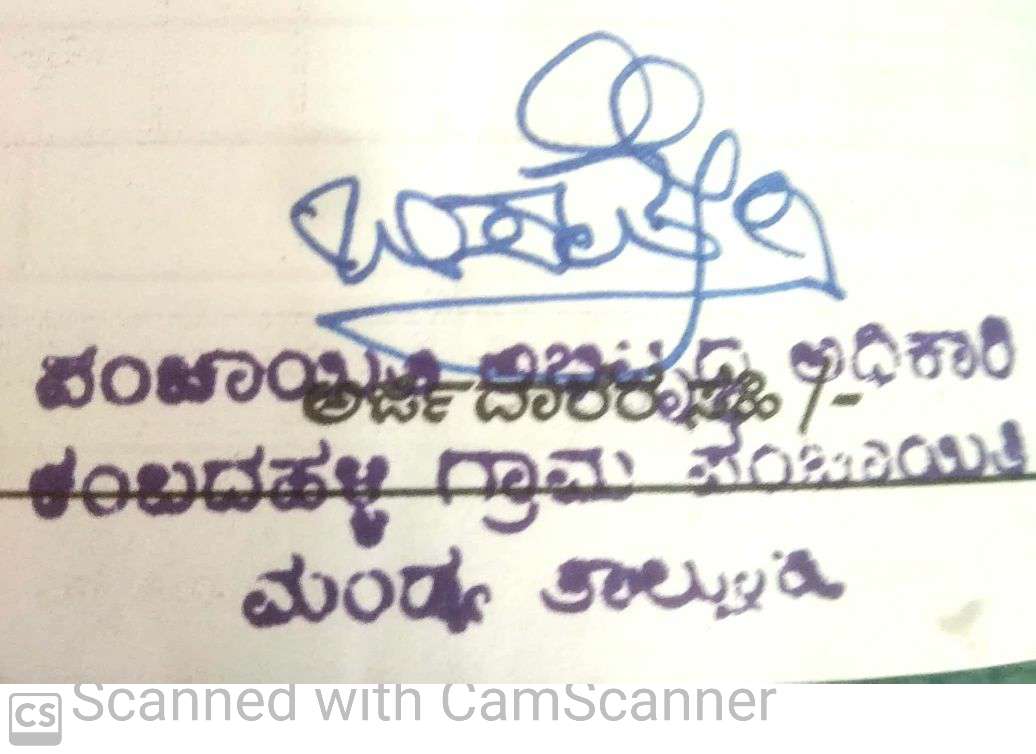 ಪಂಚಾಯಿತಿ ಅಭಿವೃದ್ಧಿ ಅಧಿಕಾರಿ
ಅರ್ಜಿದಾರರ ಸಹಿ /-
ಕಂಬದಹಳ್ಳಿ ಗ್ರಾಮ ಪಂಚಾಯಿತಿ
ಮಂಡ್ಯ ತಾಲ್ಲೂಕು
CS Scanned with CamScanner